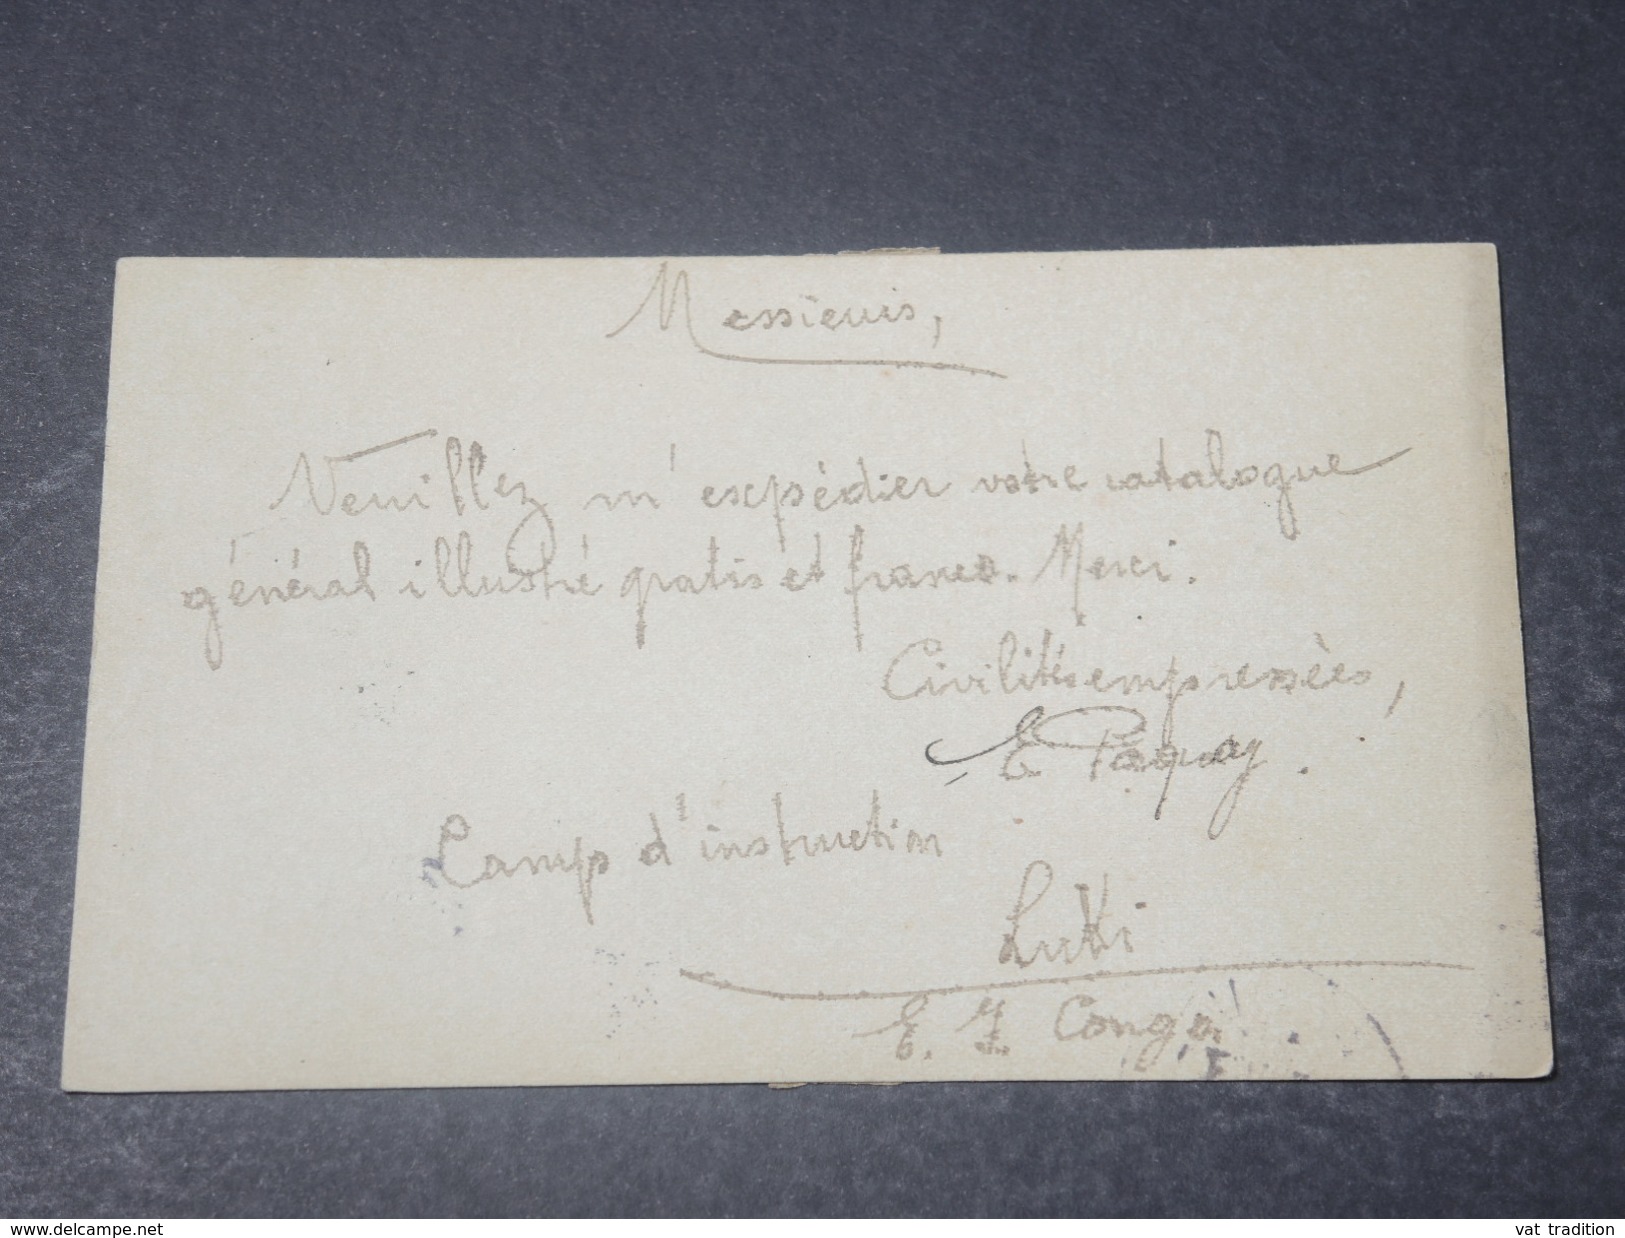 Messieurs,
Veuillez m'expédier votre catalogue
général illustré gratis et franco. Merci.
Civilités empressées,
E Paquay.
Camp d'instruction
Lukki
E. I. Congo
www.delcampe.net
vat tradition